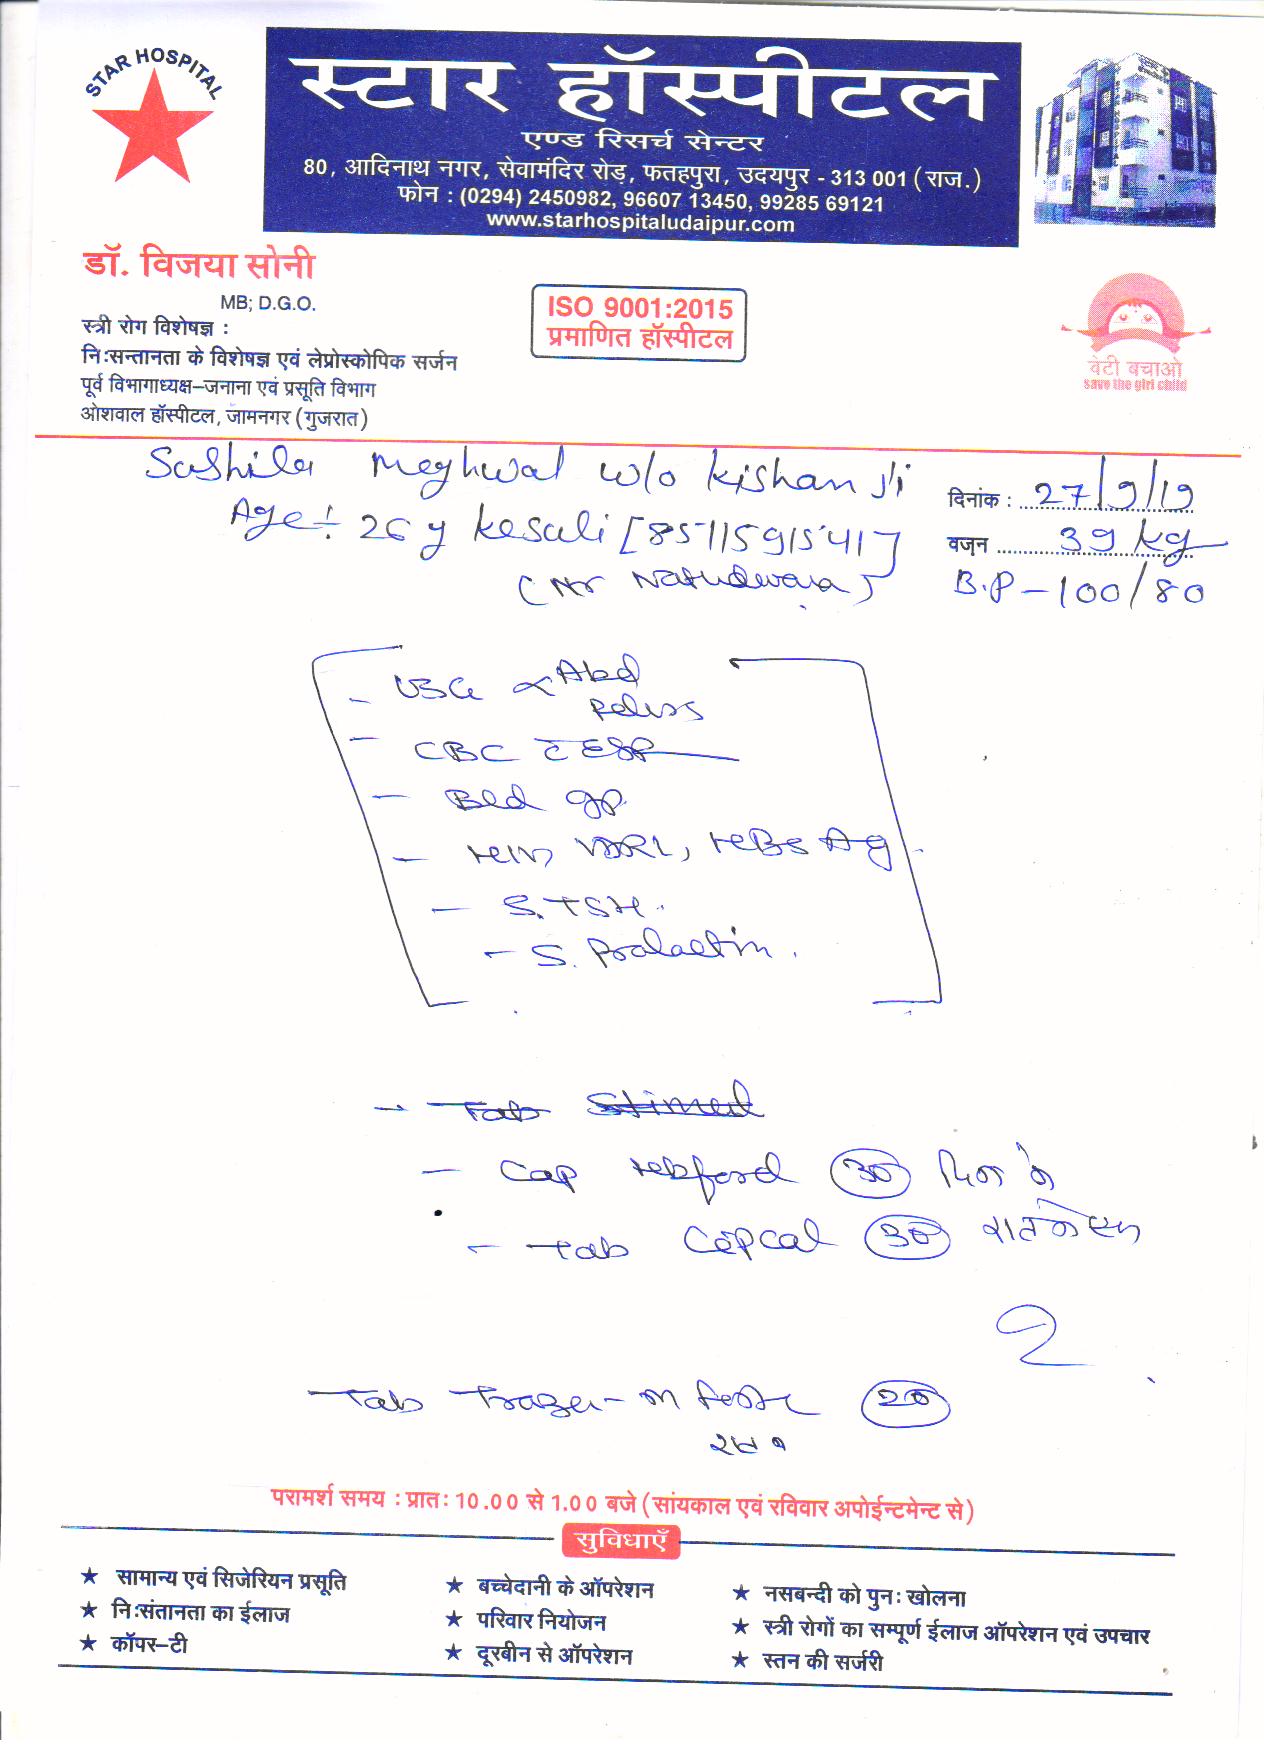 STAR HOSPITAL
स्टार हॉस्पीटल
एण्ड रिसर्च सेन्टर
80, आदिनाथ नगर, सेवामंदिर रोड़, फतहपुरा, उदयपुर - 313 001 (राज.)
फोन : (0294) 2450982, 96607 13450, 99285 69121
www.starhospitaludaipur.com
डॉ. विजया सोनी
MB; D.G.O.
स्त्री रोग विशेषज्ञ :
निःसन्तानता के विशेषज्ञ एवं लेप्रोस्कोपिक सर्जन
पूर्व विभागाध्यक्ष–जनाना एवं प्रसूति विभाग
ओशवाल हॉस्पीटल, जामनगर (गुजरात)
ISO 9001:2015
प्रमाणित हॉस्पीटल
बेटी बचाओ
save the girl child
Sushila Meghwal w/o Kishan Ji
दिनांक : 27/9/19
Age:- 26 y Kesuli [8571591541]
वजन 39 kg
(Nr Nathdwara)
B.P - 100/80
- USG Abd
Pelvis
- CBC ESR
- Bld gp.
- HIV VDRL, HBsAg.
- S. TSH.
- S. Prolactin.
- Tab
- Cap 30 दिन के
- Tab Copcal 30 रात के
2
Tab 20
परामर्श समय : प्रातः 10.00 से 1.00 बजे (सांयकाल एवं रविवार अपोईन्टमेन्ट से)
सुविधाएँ
★ सामान्य एवं सिजेरियन प्रसूति ★ बच्चेदानी के ऑपरेशन ★ नसबन्दी को पुनः खोलना
★ निःसंतानता का ईलाज ★ परिवार नियोजन ★ स्त्री रोगों का सम्पूर्ण ईलाज ऑपरेशन एवं उपचार
★ कॉपर–टी ★ दूरबीन से ऑपरेशन ★ स्तन की सर्जरी